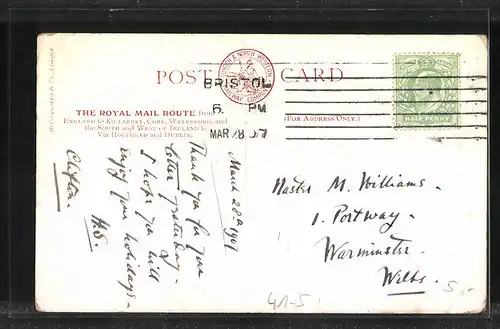 McCorquodale & Co., Limited
POST CARD
LONDON & NORTH WESTERN
RAILWAY COMPANY
BRISTOL
6. PM
MAR 28 07
HALF PENNY
THE ROYAL MAIL ROUTE from
ENGLAND to KILLARNEY, CORK, WATERFORD, and
the SOUTH and WEST OF IRELAND is
VIA HOLYHEAD and DUBLIN.
(FOR ADDRESS ONLY.)
March 28th 1907
Thank you for your
letter yesterday.
I hope you will
enjoy your holidays.
H.S.
Clifton.
Master M. Williams.
1. Portway.
Warminster.
Wilts.
41-5
5.-